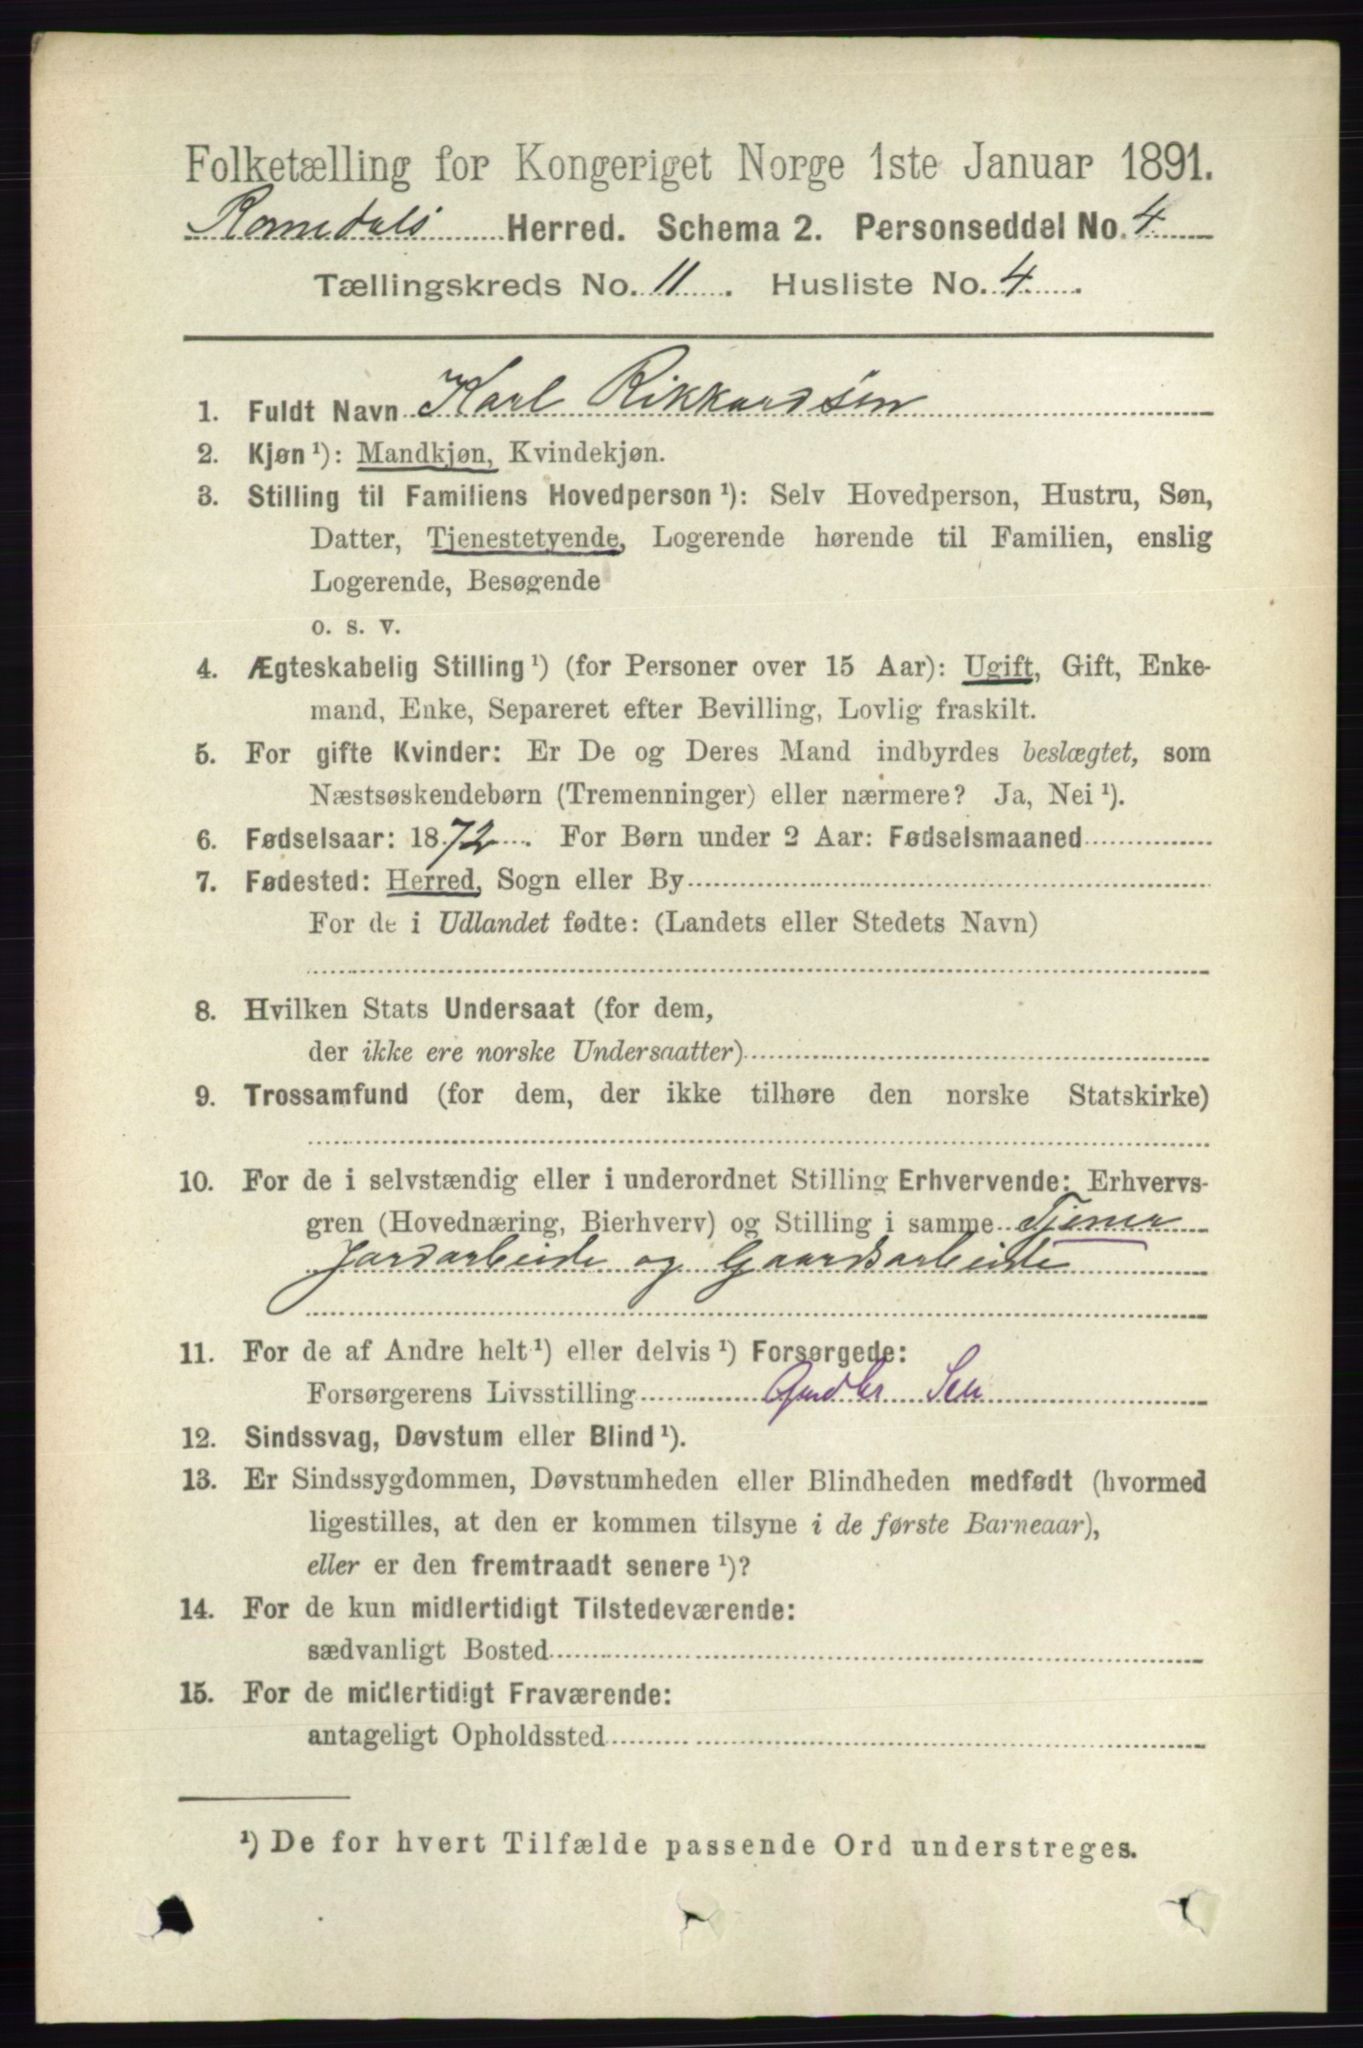 Folketælling for Kongeriget Norge 1ste Januar 1891.
Romedals Herred. Schema 2. Personseddel No. 4
Tællingskreds No. 11. Husliste No. 4.
1. Fuldt Navn Karl Rikkardsen
2. Kjøn ¹): Mandkjøn, Kvindekjøn.
3. Stilling til Familiens Hovedperson ¹): Selv Hovedperson, Hustru, Søn,
Datter, Tjenestetyende, Logerende hørende til Familien, enslig
Logerende, Besøgende
o. s. v.
4. Ægteskabelig Stilling ¹) (for Personer over 15 Aar): Ugift, Gift, Enke-
mand, Enke, Separeret efter Bevilling, Lovlig fraskilt.
5. For gifte Kvinder: Er De og Deres Mand indbyrdes beslægtet, som
Næstsøskendebørn (Tremenninger) eller nærmere? Ja, Nei ¹).
6. Fødselsaar: 1872. For Børn under 2 Aar: Fødselsmaaned
7. Fødested: Herred, Sogn eller By
For de i Udlandet fødte: (Landets eller Stedets Navn)
8. Hvilken Stats Undersaat (for dem,
der ikke ere norske Undersaatter)
9. Trossamfund (for dem, der ikke tilhøre den norske Statskirke)
10. For de i selvstændig eller i underordnet Stilling Erhvervende: Erhvervs-
gren (Hovednæring, Bierhverv) og Stilling i samme Tjener
Jordarbeide og Gaardsarbeide
11. For de af Andre helt ¹) eller delvis ¹) Forsørgede:
Forsørgerens Livsstilling
12. Sindssvag, Døvstum eller Blind ¹).
13. Er Sindssygdommen, Døvstumheden eller Blindheden medfødt (hvormed
ligestilles, at den er kommen tilsyne i de første Barneaar),
eller er den fremtraadt senere ¹)?
14. For de kun midlertidigt Tilstedeværende:
sædvanligt Bosted
15. For de midlertidigt Fraværende:
antageligt Opholdssted
¹) De for hvert Tilfælde passende Ord understreges.